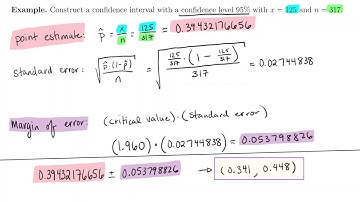 Example. Construct a confidence interval with a confidence level 95% with x = 125 and n = 317.
point estimate: p̂ = x/n = 125/317 = 0.39432176656
Standard error: √(p̂·(1-p̂)/n) = √(125/317·(1 - 125/317)/317) = 0.02744838
Margin of error: (critical value)·(standard error)
(1.960)·(0.02744838) = 0.053798826
0.39432176656 ± 0.053798826 → (0.341, 0.448)